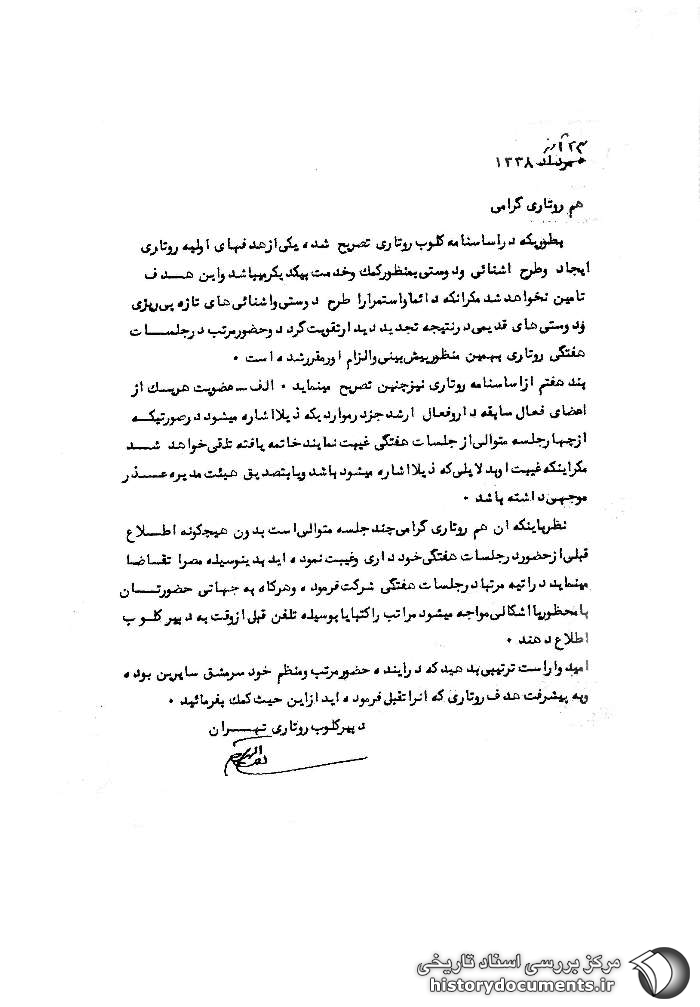 ۲۳ آذر
خرداد ۱۳۳۸
هم روتاری گرامی
بطوریکه در اساسنامه کلوب روتاری تصریح شده یکی از هدفهای اولیه روتاری
ایجاد وطرح اشنائی ودوستی بمنظور کمك وخدمت بیکدیگر میباشد واین هدف
تامین نخواهد شد مگر انکه دائما واستمرارا طرح دوستی واشنائی های تازه پی ریزی
ودوستی های قدیمی در نتیجه تجدید دیدار تقویت گردد وحضور مرتب در جلسات
هفتگی روتاری بهمین منظور پیش بینی والزام اور مقرر شده است ۰
بند هفتم از اساسنامه روتاری نیز چنین تصریح مینماید ۰ الف ــ عضویت هریك از
اعضای فعال سابقه دار وفعال ارشد جز در مواردیکه ذیلا اشاره میشود در صورتیکه
از چهار جلسه متوالی از جلسات هفتگی غیبت نمایند خاتمه یافته تلقی خواهد شد
مگر اینکه غیبت او بدلایلی که ذیلا اشاره میشود باشد ویا بتصدیق هیئت مدیره عذر
موجهی داشته باشد ۰
نظر باینکه ان هم روتاری گرامی چند جلسه متوالی است بدون هیچگونه اطلاع
قبلی از حضور در جلسات هفتگی خود داری وغیبت نموده اید بدینوسیله مصرا تقاضا
مینماید در اتیه مرتبا در جلسات هفتگی شرکت فرموده وهرگاه به جهاتی حضورتان
با محظور یا اشکالی مواجه میشود مراتب را کتبا یا بوسیله تلفن قبل از وقت به دبیر کلوب
اطلاع دهند ۰
امیدوار است ترتیبی بدهید که در آینده حضور مرتب ومنظم خود سرمشق سایرین بوده
وبه پیشرفت هدف روتاری که انرا تقبل فرموده اید از این حیث کمك بفرمائید ۰
دبیر کلوب روتاری تهران
مرکز بررسی اسناد تاریخی
historydocuments.ir